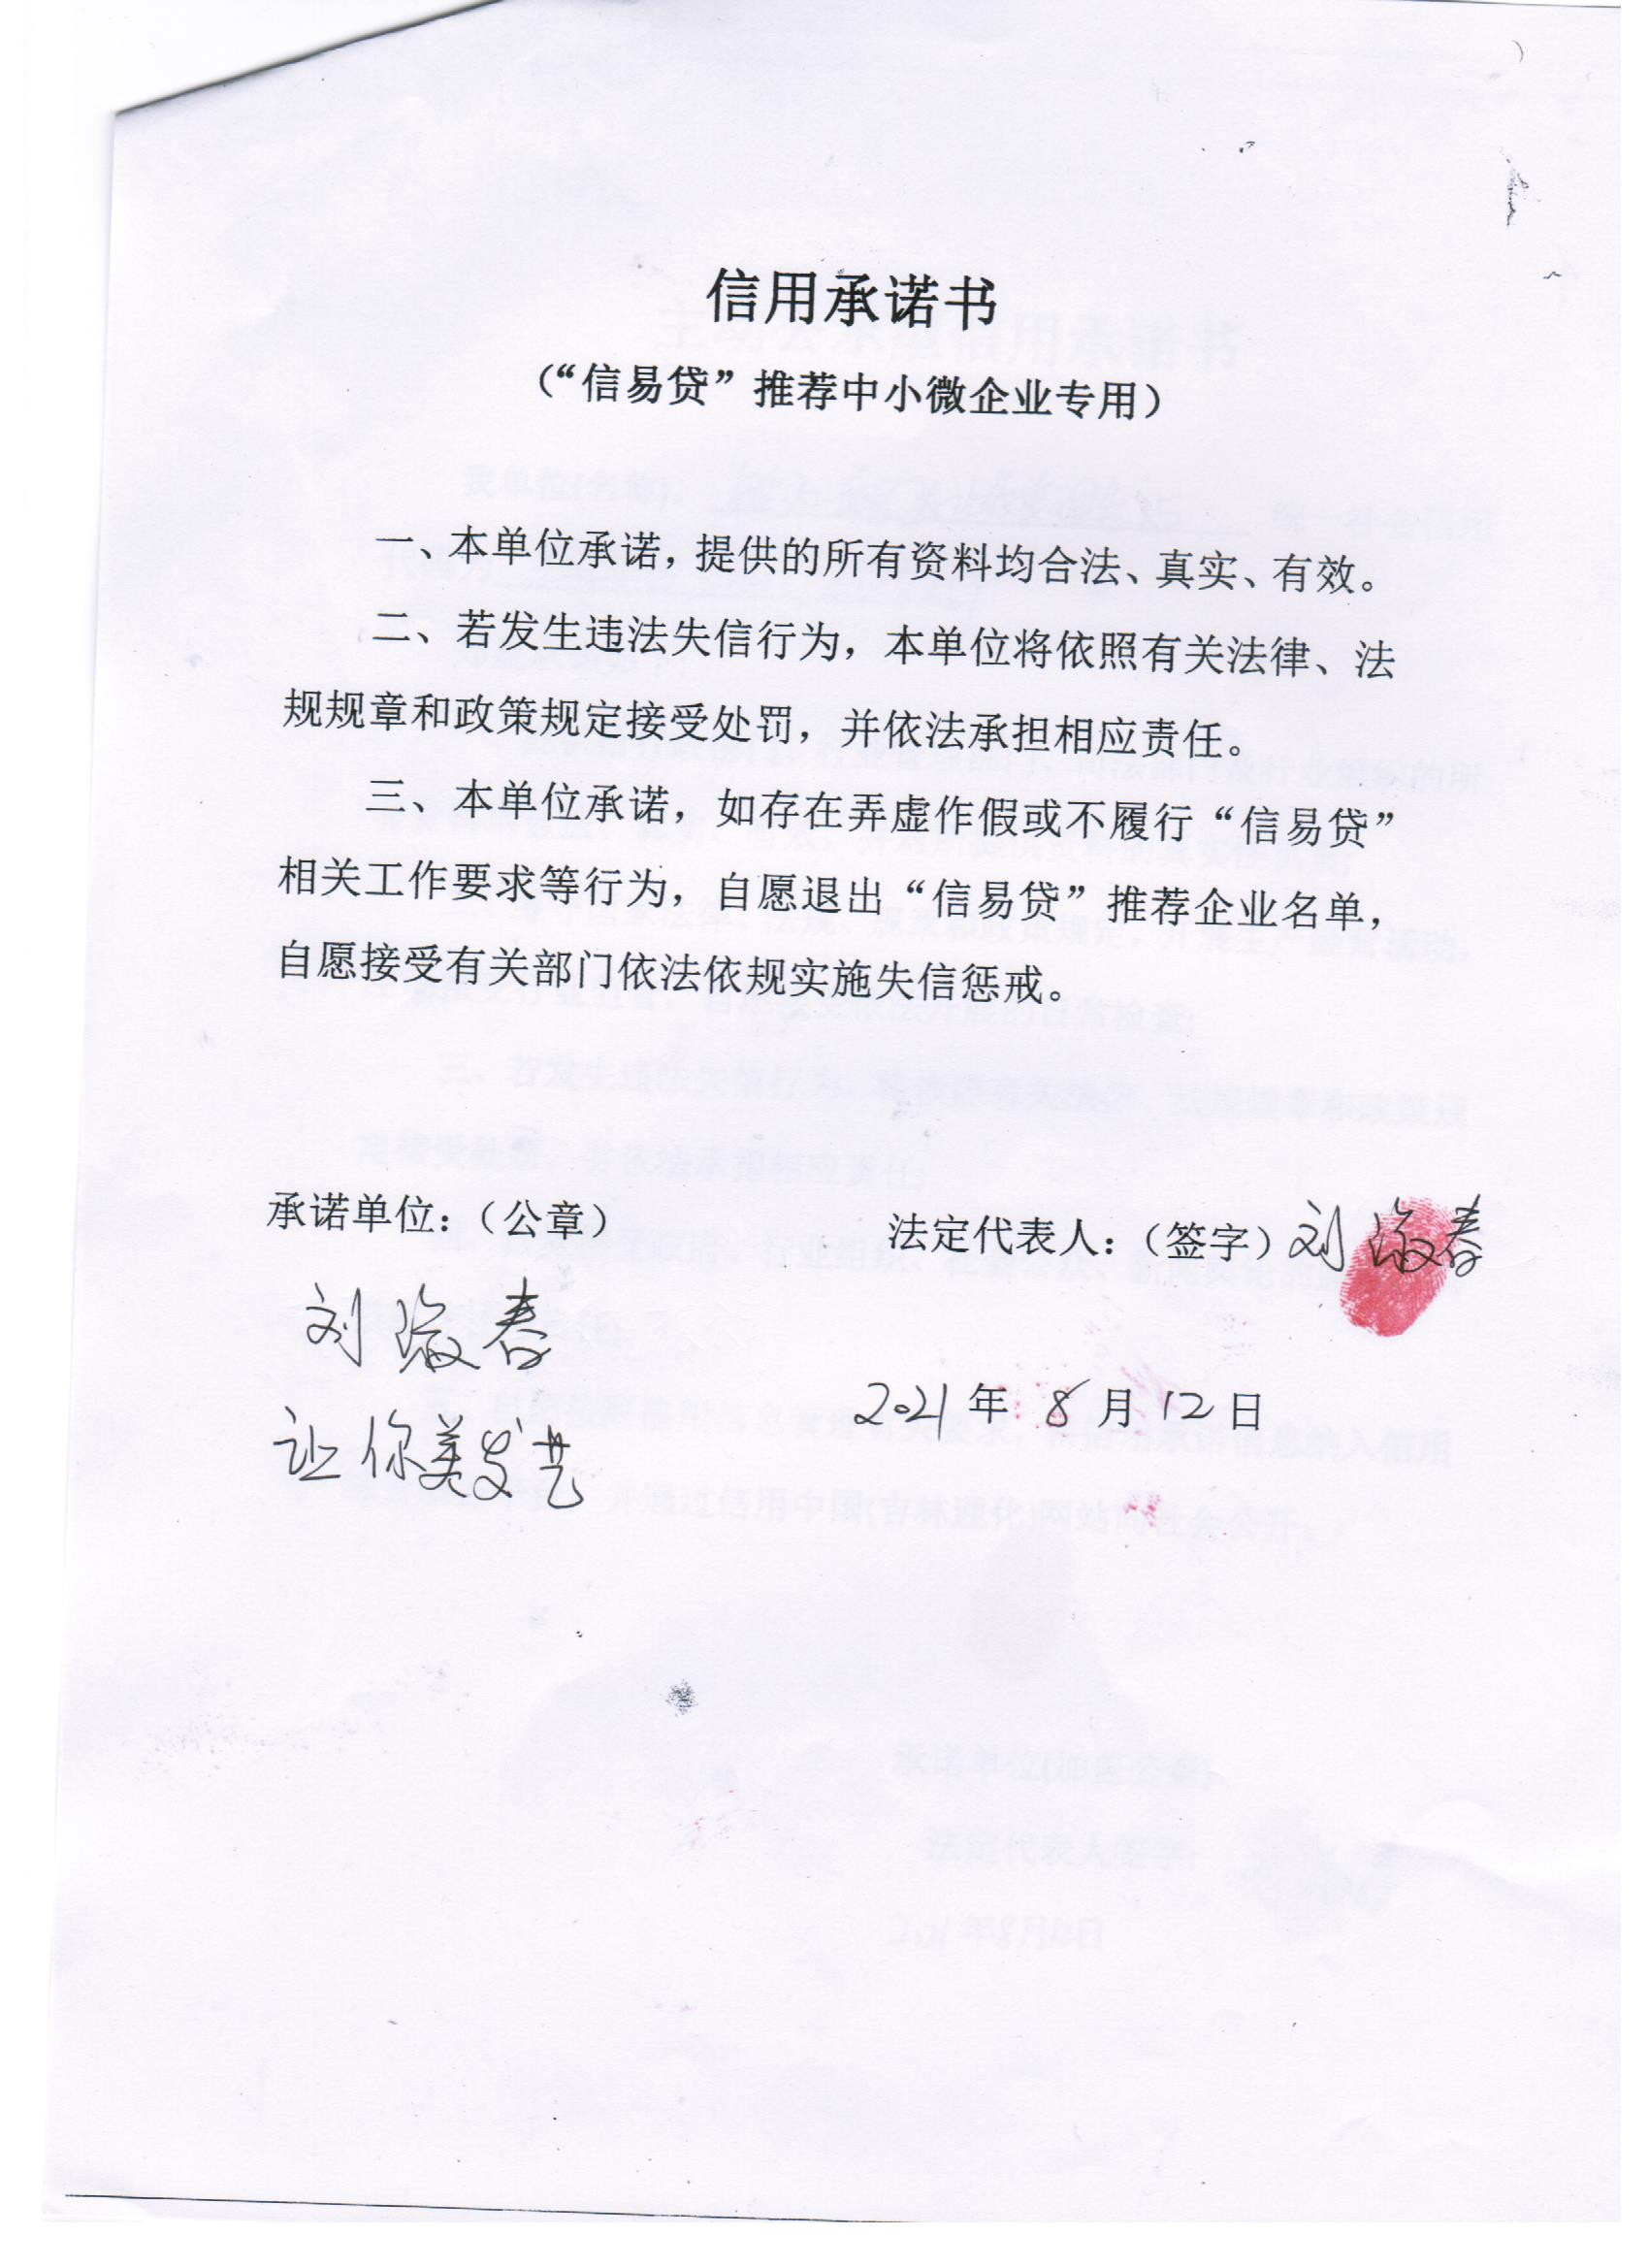 信用承诺书
（“信易贷”推荐中小微企业专用）
一、本单位承诺，提供的所有资料均合法、真实、有效。
二、若发生违法失信行为，本单位将依照有关法律、法
规规章和政策规定接受处罚，并依法承担相应责任。
三、本单位承诺，如存在弄虚作假或不履行“信易贷”
相关工作要求等行为，自愿退出“信易贷”推荐企业名单，
自愿接受有关部门依法依规实施失信惩戒。
承诺单位：（公章）
法定代表人：（签字）刘 春
刘 春
2021年 8月12日
让你美发艺